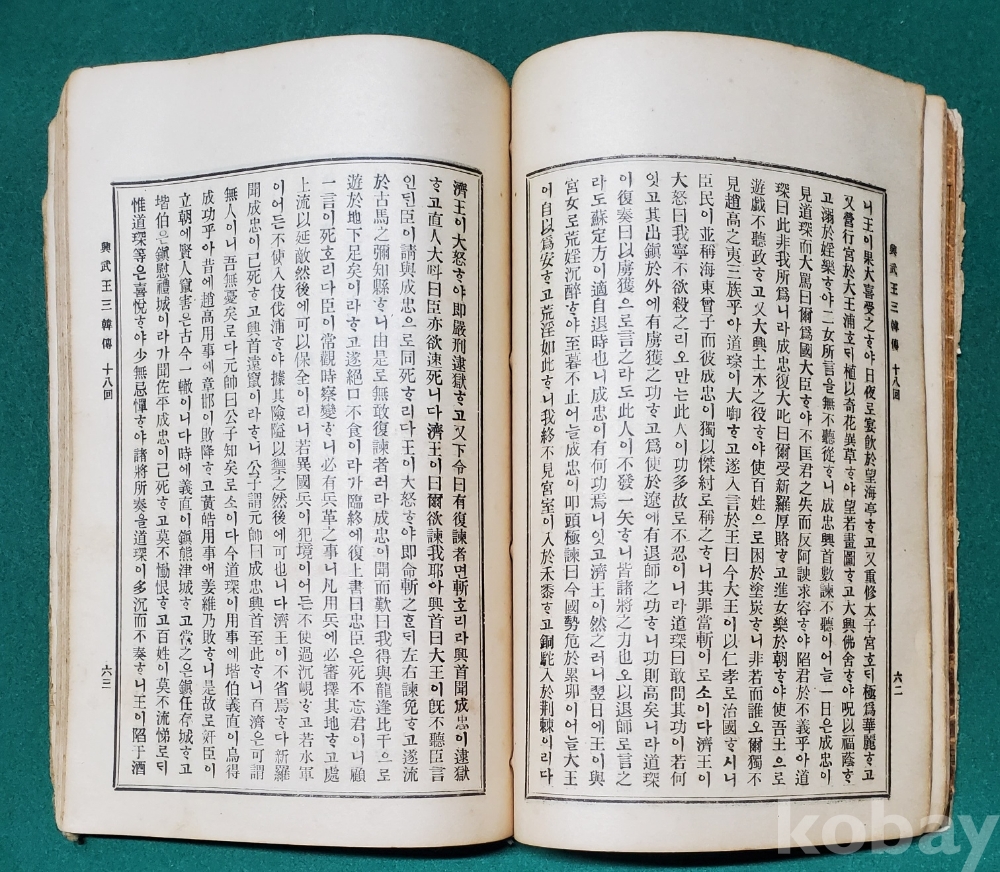 니王이果大喜受之ᄒᆞ야日夜로宴飮於望海亭ᄒᆞ고又重修太子宮호ᄃᆡ極爲華麗ᄒᆞ고
又營行宮於大王浦호ᄃᆡ植以奇花異草ᄒᆞ야望若畫圖ᄒᆞ고大興佛舍ᄒᆞ야呪以福蔭ᄒᆞ
고溺於婬樂ᄒᆞ야二女所言을無不聽從ᄒᆞ니成忠興首數諫不聽이어늘一日은成忠이
見道琛而大罵曰爾爲國大臣ᄒᆞ야不匡君之失而反阿諛求容ᄒᆞ야陷君於不義乎아道
琛曰此非我所爲니라成忠復大叱曰爾受新羅厚賂ᄒᆞ고進女樂於朝ᄒᆞ야使吾王으로
遊戲不聽政ᄒᆞ고又大興土木之役ᄒᆞ야使百姓으로困於塗炭ᄒᆞ니非若而誰오爾獨不
見趙高之夷三族乎아道琮이大啣ᄒᆞ고遂入言於王曰今大王이以仁孝로治國ᄒᆞ시니
臣民이並稱海東曾子而彼成忠이獨以傑紂로稱之ᄒᆞ니其罪當斬이로소이다濟王이
大怒曰我寧不欲殺之리오만는此人이功多故로不忍이니라道琛曰敢問其功이若何
잇고其出鎭於外에有虜獲之功ᄒᆞ고爲使於遼에有退師之功ᄒᆞ니功則高矣니라道琛
이復奏曰以虜獲으로言之라도此人이不發一矢ᄒᆞ니皆諸將之力也오以退師로言之
라도蘇定方이適自退時也니成忠이有何功焉니잇고濟王이然之러니翌日에王이與
宮女로荒淫沉醉ᄒᆞ야至暮不止어늘成忠이叩頭極諫曰今國勢危於累卵이어늘大王
이自以爲安ᄒᆞ고荒淫如此ᄒᆞ니我終不見宮室이入於禾黍ᄒᆞ고銅駝入於荊棘이리다
興武王三韓傳 十八回
六二
濟王이大怒ᄒᆞ야卽嚴刑逮獄ᄒᆞ고又下令曰有復諫者면斬호리라興首聞成忠이逮獄
ᄒᆞ고直入大呌曰臣亦欲速死니다濟王이曰爾欲諫我耶아興首曰大王이旣不聽臣言
인ᄃᆡᆫ臣이請與成忠으로同死ᄒᆞ리다王이大怒ᄒᆞ야卽命斬之호ᄃᆡ左右諫免ᄒᆞ고遂流
於古馬之彌知縣ᄒᆞ니由是로無敢復諫者러라成忠이聞而歎曰我得與龍逄比干으로
遊於地下足矣이라ᄒᆞ고遂絕口不食이라가臨終에復上書曰忠臣은死不忘君이니顧
一言而死호리다臣이常觀時察變ᄒᆞ니必有兵革之事니凡用兵에必審擇其地ᄒᆞ고處
上流以延敵然後에可以保全이리니若異國兵이犯境이어든不使過沉峴ᄒᆞ고若水軍
이어든不使入伎伐浦ᄒᆞ야據其險隘以禦之然後에可也니다濟王이不省焉ᄒᆞ다新羅
聞成忠이已死ᄒᆞ고興首遠竄이라ᄒᆞ니公子謂元帥曰成忠興首至此ᄒᆞ니百濟은可謂
無人이니吾無憂矣로다元帥曰公子知矣로소이다今道琛이用事에堦伯義直이烏得
成功乎아昔에趙高用事에章邯이敗降ᄒᆞ고黃皓用事애姜維乃敗ᄒᆞ니是故로奸臣이
立朝에賢人竄害은古今一轍이니다時에義直이鎭熊津城ᄒᆞ고常之은鎭任存城ᄒᆞ고
堦伯은鎭慰禮城이라가聞佐平成忠이已死ᄒᆞ고莫不慟恨ᄒᆞ고百姓이莫不流悌로ᄃᆡ
惟道琛等은喜悅ᄒᆞ야少無忌憚ᄒᆞ야諸將所奏을道琛이多沉而不奏ᄒᆞ니王이陷于酒
興武王三韓傳 十八回
六三
kobay